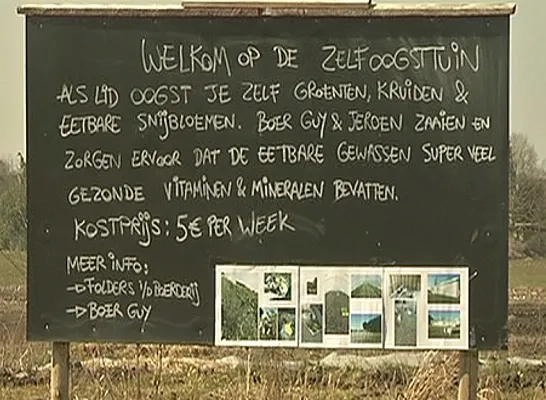 WELKOM OP DE ZELFOOGSTTUIN
ALS LID OOGST JE ZELF GROENTEN, KRUIDEN &
EETBARE SNIJBLOEMEN. BOER GUY & JEROEN ZAAIEN EN
ZORGEN ERVOOR DAT DE EETBARE GEWASSEN SUPER VEEL
GEZONDE VITAMINEN & MINERALEN BEVATTEN.
KOSTPRIJS: 5€ PER WEEK
MEER INFO:
→ FOLDERS I/D BOERDERIJ
→ BOER GUY